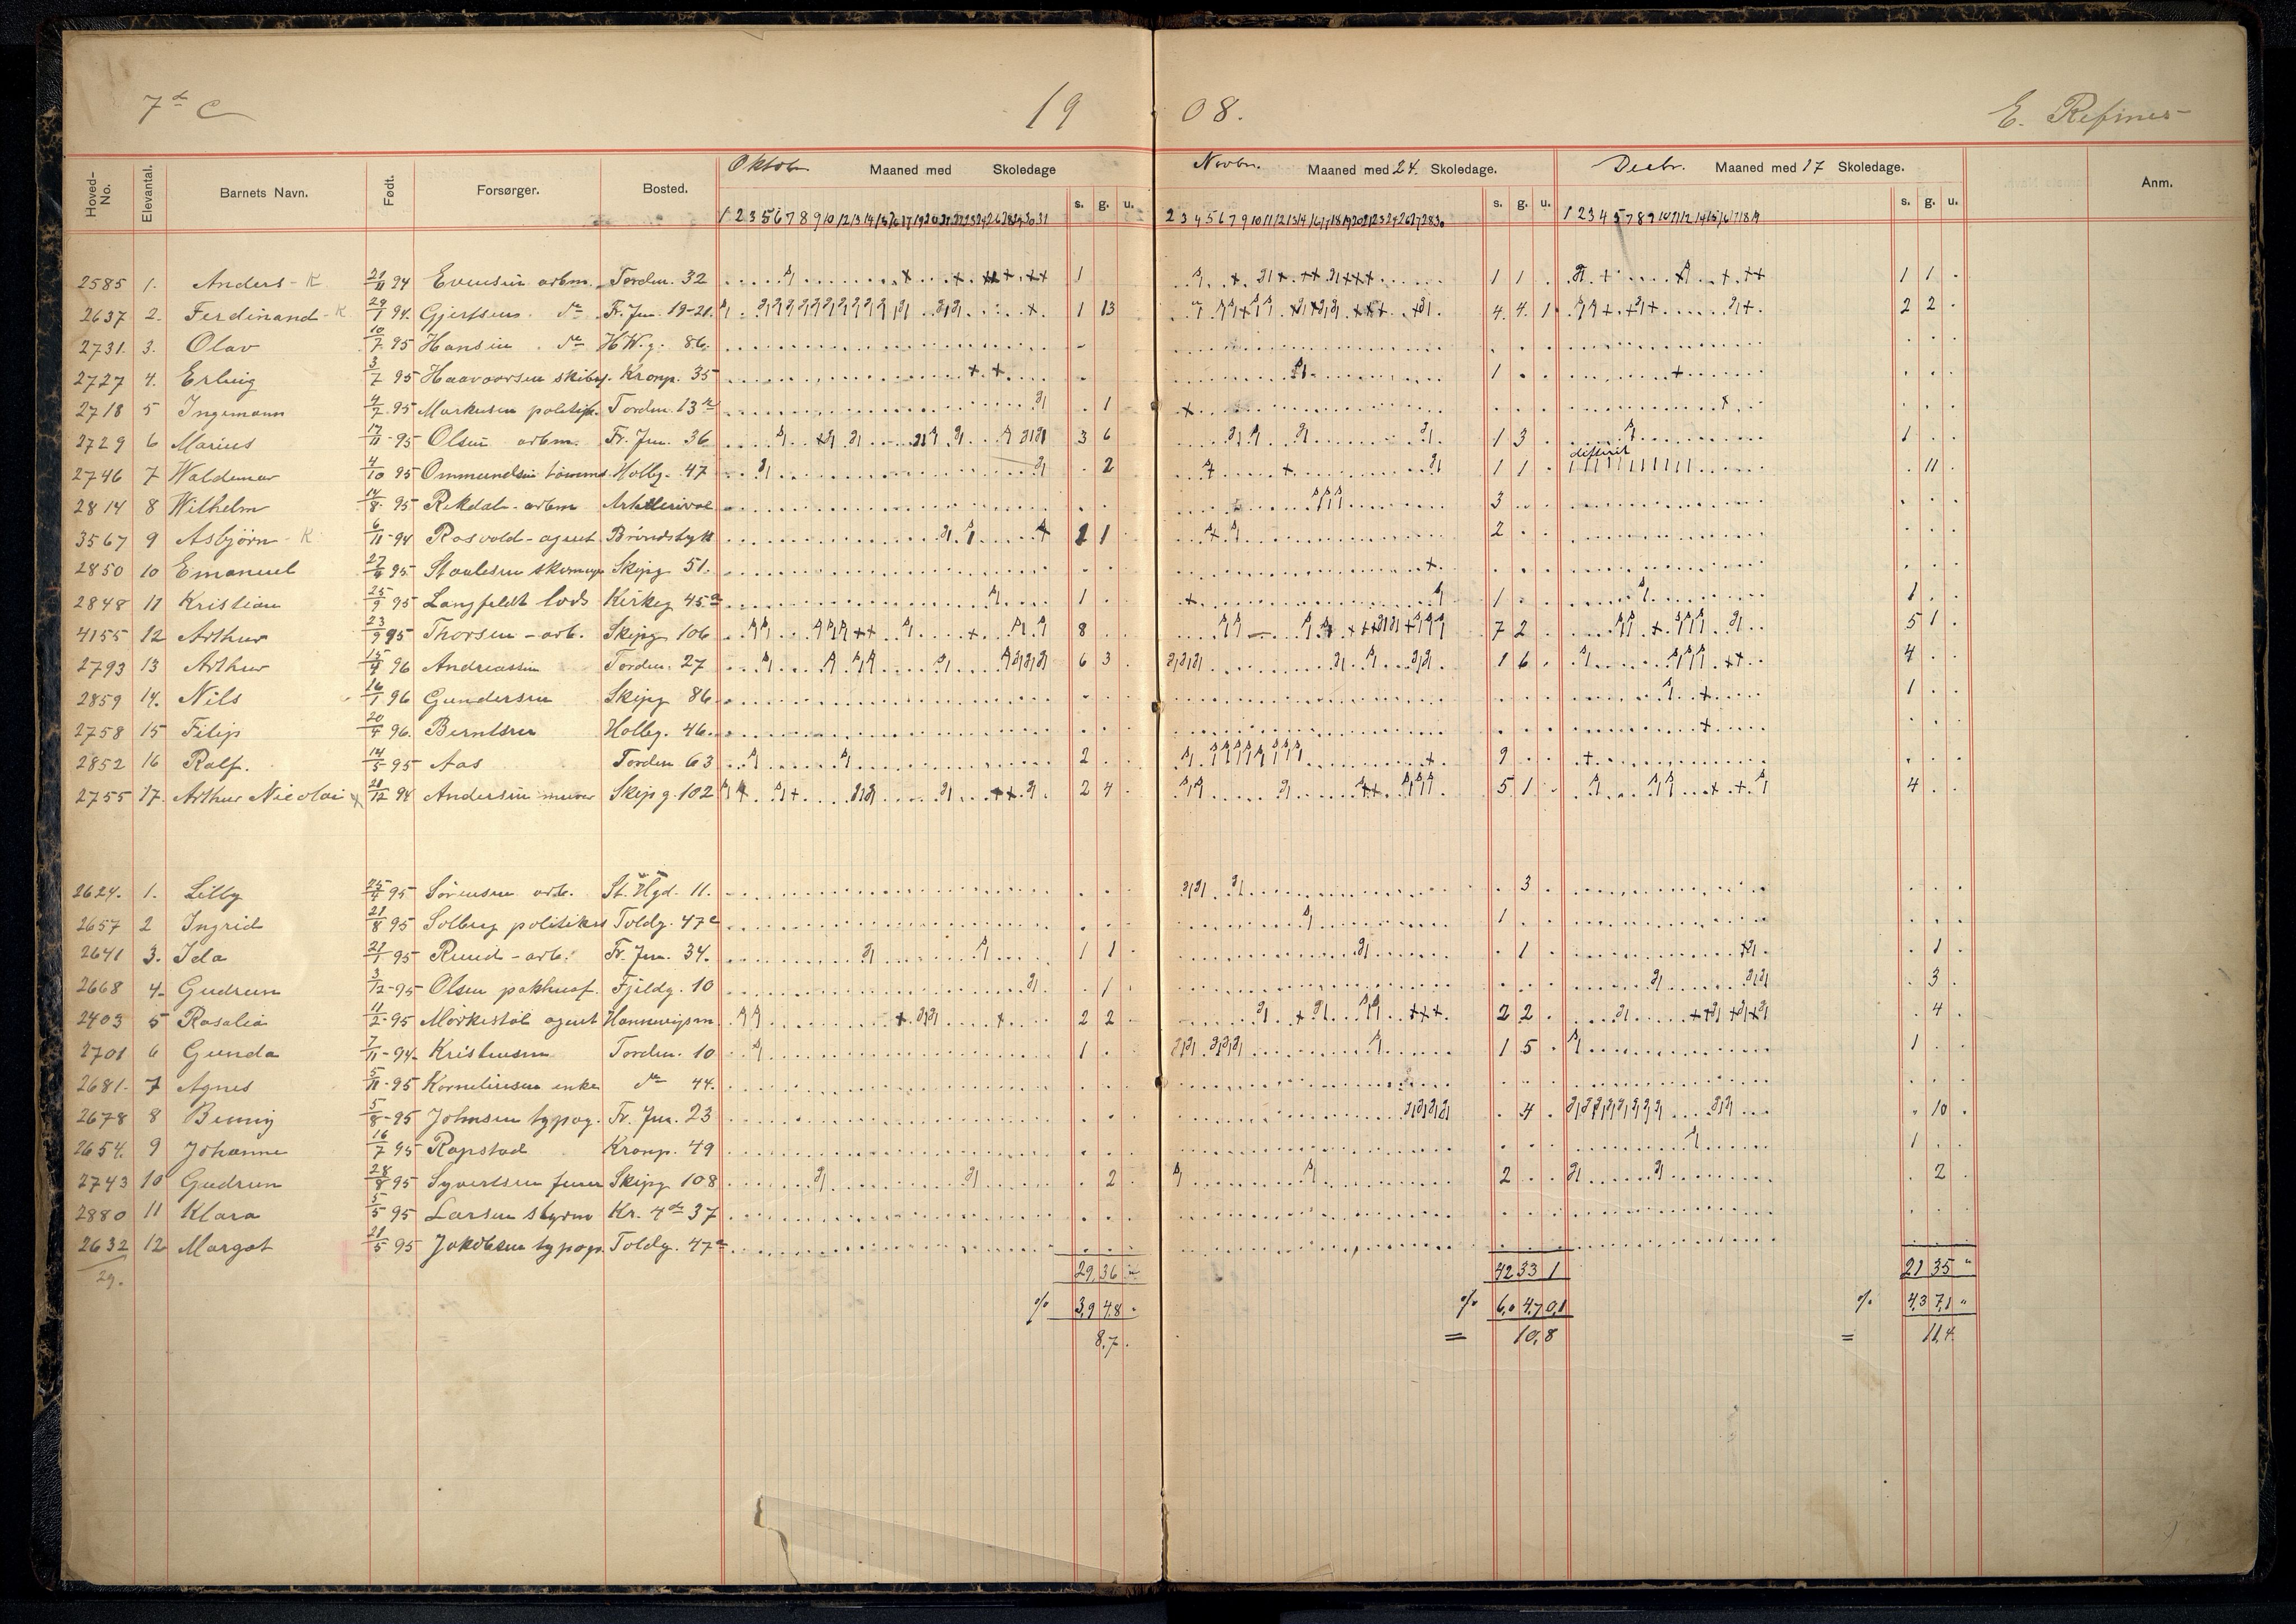 7de C 19 08. E. Refsnes
Hoved-No. Elevantal. Barnets Navn. Født. Forsørger. Bosted. Oktober Maaned med Skoledage Novbr. Maaned med 24 Skoledage. Decbr. Maaned med 17 Skoledage. Anm.
s. g. u. s. g. u. s. g. u.
1 2 3 5 6 7 8 9 10 12 13 14 15 16 17 19 20 21 22 23 24 26 27 28 29 30 31 2 3 4 5 6 7 9 10 11 12 13 14 16 17 18 19 20 21 23 24 26 27 28 30 1 2 3 4 5 7 8 9 10 11 12 14 15 16 17 18 19
2585 1. Anders - K 21/11 94 Evensen arbm. Torden. 32 1 1 1 1 1
2637 2. Ferdinand - K 29/1 94. Gjertsen. do Fr. Jun. 19-21. 1 13 4. 4. 1 2 2
2731. 3. Olav 10/7 95 Hansen do H W. g. 86.
2727 4. Erling 3/7 95 Haavorsen Kronp. 35 1
2718 5 Ingemann 4/7 95 Markusen politik. Torden. 13 1
2729 6 Marius 17/11 95 Olsen arbm. Fr. Jun. 36 3 6 1 3 1
2746 7 Waldemar 4/10 95 Ommundsen tømmr. Holbg. 47 2 1 1 difterit 11
2814 8 Wilhelm 14/8 95 Rekdal arbm 3
3567 9 Asbjørn - K 6/11 94 Rosvold - agent 1 2
2850 10 Emanuel 27/9 95 Staalesen skomager Skipg 51.
2848 11 Kristian 25/9 95 Langfeldt lods Kirkeg 45a 1 1 1
4155 12 Arthur 23/9 95 Thorsen - arb. Skipg 106 8 7 2 5 1
2793 13 Arthur 15/4 96 Andreassen Torden. 27 6 3 1 6 4
2859 14. Nils 16/1 96 Gundersen Skipg 86 1
2758 15 Filip 20/4 96. Berntsen Holbg. 46.
2852 16 Ralf. 14/5 95 Aas Torden 63 2 9
2755 17. Arthur Nicolai 21/12 94 Andersen murer Skipg. 102 2 4 5 1 4
2624. 1. Lilly 25/4 95 Sørensen arb. St. Hgd. 11. 3
2657 2 Ingrid 21/8 95 Solberg politikst Toldg. 47c 1
2641 3. Ida 21/1 95 Ruud - arb. Fr. Jun. 34. 1 1 1 1
2668 4. Gudrun 3/12 95 Olsen pakhusf. Fjeldg. 10 1 3
2403 5 Rosalie 11/2 95 Mørkestøl agent Hannevigsm. 2 2 2 2 4
2701 6 Gunda 7/11 94 Kristensen Torden. 10 1 1 5 1
2681. 7 Agnes 5/11 95 Korneliussen enke do 44.
2678 8 Benny 5/8 95 Johnsen typog. Fr. Jun. 23 4 10
2654. 9 Johanne 16/7 95 Rapstad Kronp. 49 1
2743 10 Gudrun 28/8 95 Syvertsen Skipg 108 2 2 2
2880 11 Klara 5/5 95 Larsen styrm Kr. 4de 37
2632 12 Margot 21/5 95 Jakobsen typogr. Toldg. 47a
29. 29,36 „ 42 33 1 21 35 „
% 3,9 4,8 „ % 6,0 4,7 0,1 % 4,3 7,1 „
8,7. = 10,8 = 11,4.